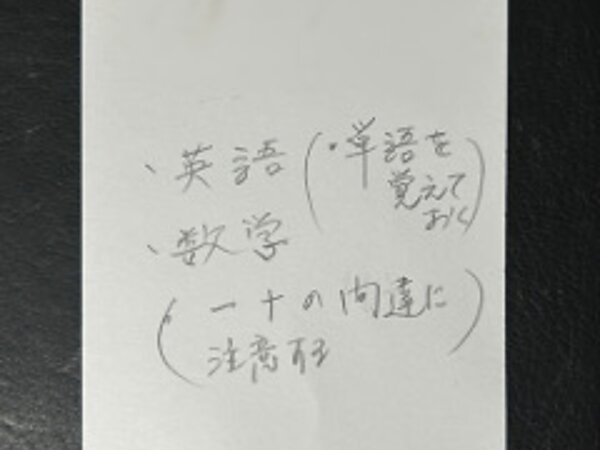 ・英語(・単語を
覚えて
おく)
・数学
(・ー+の間違に
注意する)